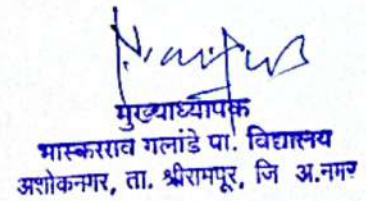 मुख्याध्यापक
भास्करराव गलांडे पा. विद्यालय
अशोकनगर, ता. श्रीरामपूर, जि अ.नगर